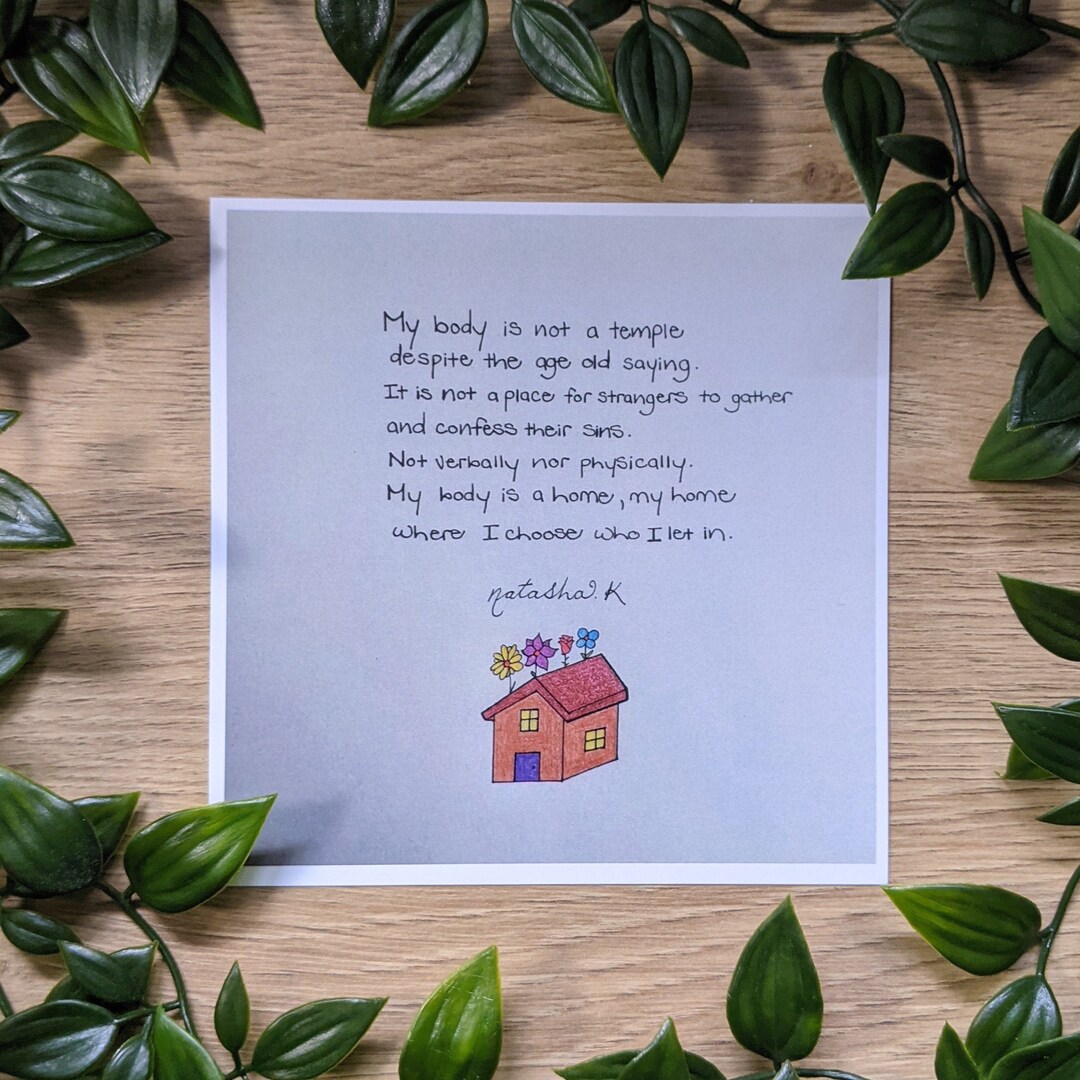 My body is not a temple
despite the age old saying.
It is not a place for strangers to gather
and confess their sins.
Not verbally nor physically.
My body is a home, my home
where I choose who I let in.
natasha. K